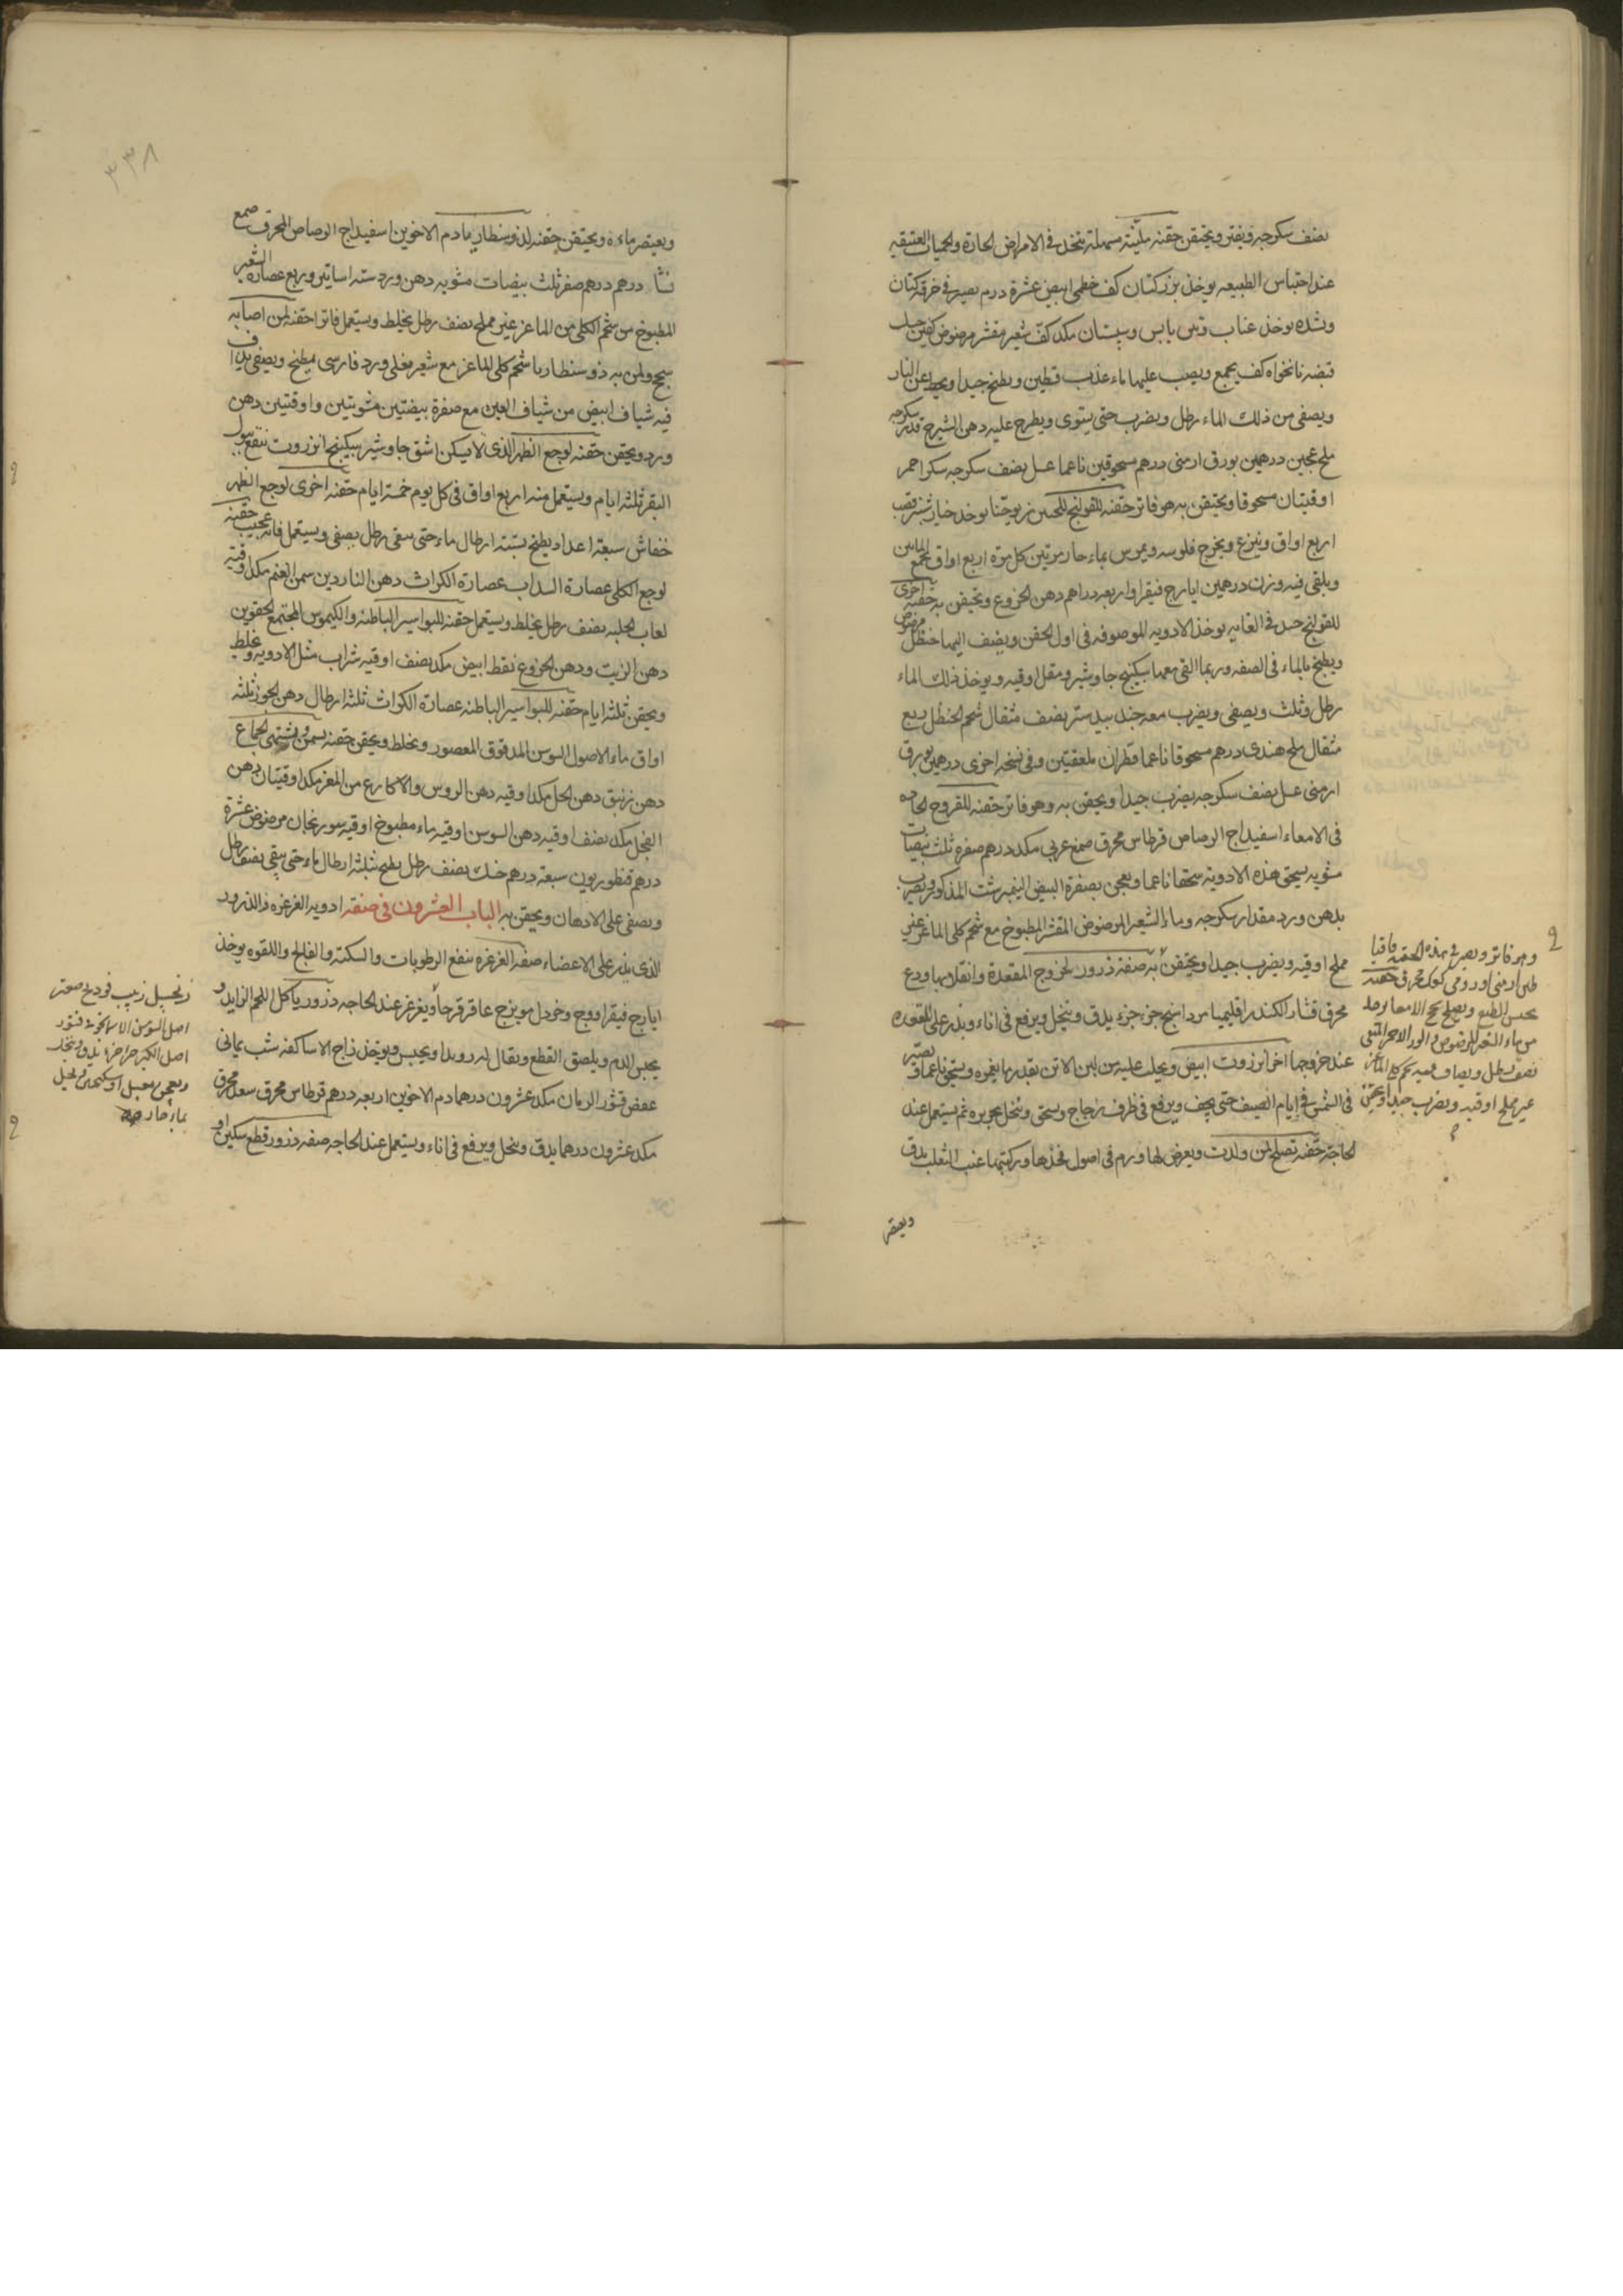 نصف سكرجه ويفتر ويحتقن حقنه ملينه مسهلة تتخذ في الامراض الحادة والحميات العتيقه
عند احتباس الطبيعه يوخذ بزر كتان كف خطمى ابيض عشرة درم يصير في خرقة كتان
وتشده يوخذ عناب وتين يابس وسبستان مكد كف شعير مقشر مرضوض كفين
قبضه نانخواه كف يجمع ويصب عليها ماء عذب قسطين ويطبخ جيدا ويحط عن النار
ويصفى من ذلك الماء رطل ويضرب حتى يستوى ويطرح عليه دهن الشيرج قدر سكرجه
ملح عجين درهمين بورق ارمنى درهم مسحوقين ناعما عسل نصف سكرجه سكر احمر
اوقيتان مسحوقا ويحتقن به هو فاتر حقنه للقولنج يوخذ خيارشنبر
اربع اواق وينزع ويخرج فلوسه ويمرس بماء حار مرتين كل مرة اربع اواق يجمع الماءين
ويلقى فيه وزن درهمين ايارج فيقرا واربعه دراهم دهن الخروع ويحتقن به حقنه اخرى
للقولنج جيد في الغايه يوخذ الادويه الموصوفه في اول الحقن ويضف اليها حنظل مرضوض
ويطبخ بالماء في الصفه وربما القى معها سكبينج جاوشير ومقل اوقيه ويوخذ ذلك الماء
رطل وثلث ويصفى ويضرب معه جندبيدستر نصف مثقال شحم الحنظل ربع
مثقال ملح هندى درهم مسحوقا ناعما قطران ملعقتين وفي نسخه اخرى درهمين بورق
ارمنى عسل نصف سكرجه يضرب جيدا ويحقن به وهو فاتر حقنه للقروح الحاده
في الامعاء اسفيداج الرصاص قرطاس محرق صمغ عربى مكد درهم صفره ثلث بيضات
مشويه يسحق هذه الادوية سحقا ناعما ويعجن بصفرة البيض النيمبرشت المذكور ويضرب
بدهن ورد مقدار سكرجه وماء الشعير المرضوض المقشر المطبوخ مع شحم كلى الماعز غير
مملح اوقيه ويضرب جيدا ويحتقن به صفة ذرور لخروج المقعدة وانقلابها ودع
محرق قشار الكندر اقليميا مرداسنج جزء جزء يدق وينخل ويرفع في اناء ويذر على المقعده
عند خروجها اخر انزروت ابيض ويحلب عليه من لبن الاتن بقدر ما يغمره ويسحق ناعما ويصير
في الشمس في ايام الصيف حتى يجف ويرفع في ظرف زجاج ويسحق وينخل بحريره ثم يستعمل عند
الحاجة حقنه تصلح لمن ولدت ويعرض لها ورم في اصول فخذها وركبتها عنب الثعلب يدق
ويعتصر
وهو فاتر ويصير في هذه الحقنه قاقيا
طين ارمنى او رومى محرق حقنه
يحبس الطبع ويصلح سحج الامعا
من ماء الشعير المرضوض والورد الاحمر المنقى
نصف رطل ويضاف فيه شحم كلى الماعز
غير مملح اوقيه ويضرب جيدا ويحتقن
٣٣٨
ويعتصر ماءه ويحتقن حقنه لذوسنطاريا دم الاخوين اسفيداج الرصاص المحرق صمغ
نشا درهم درهم صفر ثلث بيضات مشويه دهن ورد سته اساتير وربع عصارة الشعير
المطبوخ من شحم الكلى من الماعز غير مملح نصف رطل يخلط ويستعمل فاترا حقنه لمن اصابه
سحج ولمن به ذوسنطاريا شحم كلى الماعز مع شعير يغلى ورد فارسى يطبخ ويصفى يداف
فيه شياف ابيض من شياف العين مع صفرة بيضتين مشويتين واوقيتين دهن
ورد ويحقن حقنه لوجع الظهر الذى لا يسكن اشق جاوشير سكبينج انزروت ينقع ببول
البقر ثلثه ايام ويستعمل منه اربع اواق في كل يوم خمسة ايام حقنه اخرى لوجع الظهر
خفاش سبعة اعداد يطبخ بستة ارطال ماء حتى يبقى رطل يصفى ويستعمل فانه عجيب حقنه
لوجع الكلى عصارة السداب عصارة الكراث دهن الناردين سمن الغنم مكد اوقية
لعاب الحلبه نصف رطل يخلط ويستعمل حقنه للبواسير الباطنه والكيموس المجتمع الحقوين
دهن الزيت ودهن الخروع نفط ابيض مكد نصف اوقيه شراب مثل الادويه ويخلط
ويحقن ثلثة ايام حقنه للبواسير الباطنه عصارة الكراث ثلثة ارطال دهن الجوز ثلثه
اواق ماء الاصول السوس المدقوق المعصور ويخلط ويحقن حقنه يسمن ويشهى الجماع
دهن زنبق دهن الحل مكد اوقيه دهن الروس والاكارع من المعز مكد اوقيتان دهن
الفجل مكد نصف اوقيه دهن السوس اوقيه ماء مطبوخ اوقيه سورنجان مرضوض عشرة
درهم قنطوريون سبعة درهم خسك نصف رطل يطبخ بثلثة ارطال ماء حتى يبقى نصف رطل
ويصفى على الادهان ويحقن به الباب العشرون في صفة ادويه الغرغره والذرور
الذى يذر على الاعضاء صفه الغرغره تنفع الرطوبات والسكته والفالج واللقوه يوخذ
ايارج فيقرا ووج وخردل مويزج عاقرقرحا ويغرغر عند الحاجه ذرور ياكل اللحم الزايد و
يحبس الدم ويلصق القطع ويقال اندرويدا ويحبس ويوخذ زاج الاساكفه شب يمانى
عفص قشور الرمان مكد عشرون درهما دم الاخوين اربعه درهم قرطاس محرق محرق
مكد عشرون درهما يدق وينخل ويرفع في اناء ويستعمل عند الحاجه صفه ذرور قطع سكين او
زنجبيل زبيب فودنج صعتر
اصل السوسن الاسمانجونى قشور
اصل الكبر اجزا يدق وينخل
ويعجن بعسل او سكنجبين ويحل
بماء حار